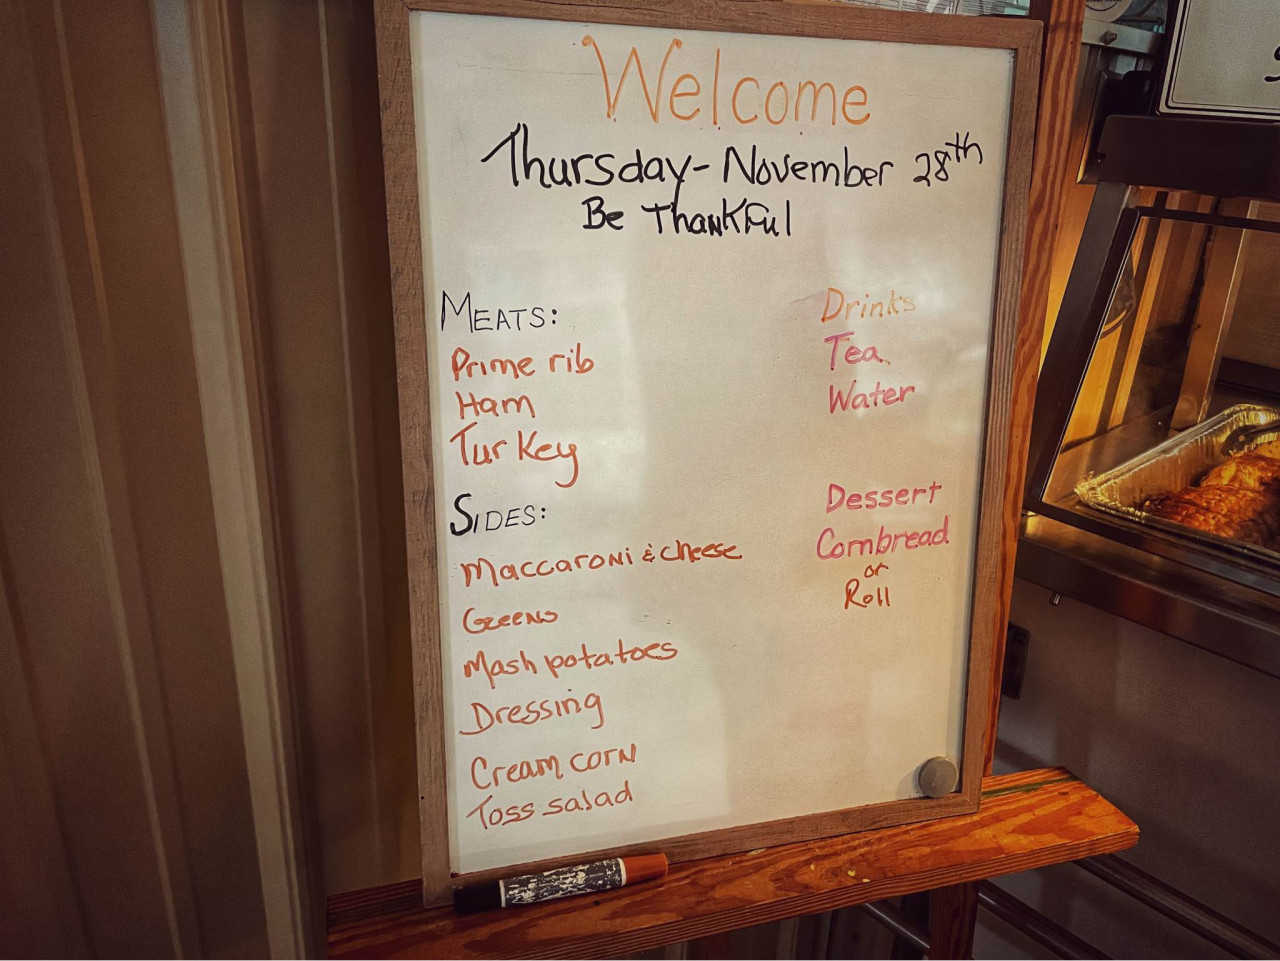 Welcome
Thursday - November 28th
Be Thankful
MEATS:
Prime rib
Ham
Turkey
SIDES:
Maccaroni & cheese
Greens
Mash potatoes
Dressing
Cream corn
Toss salad
Drinks
Tea
Water
Dessert
Cornbread
or
Roll